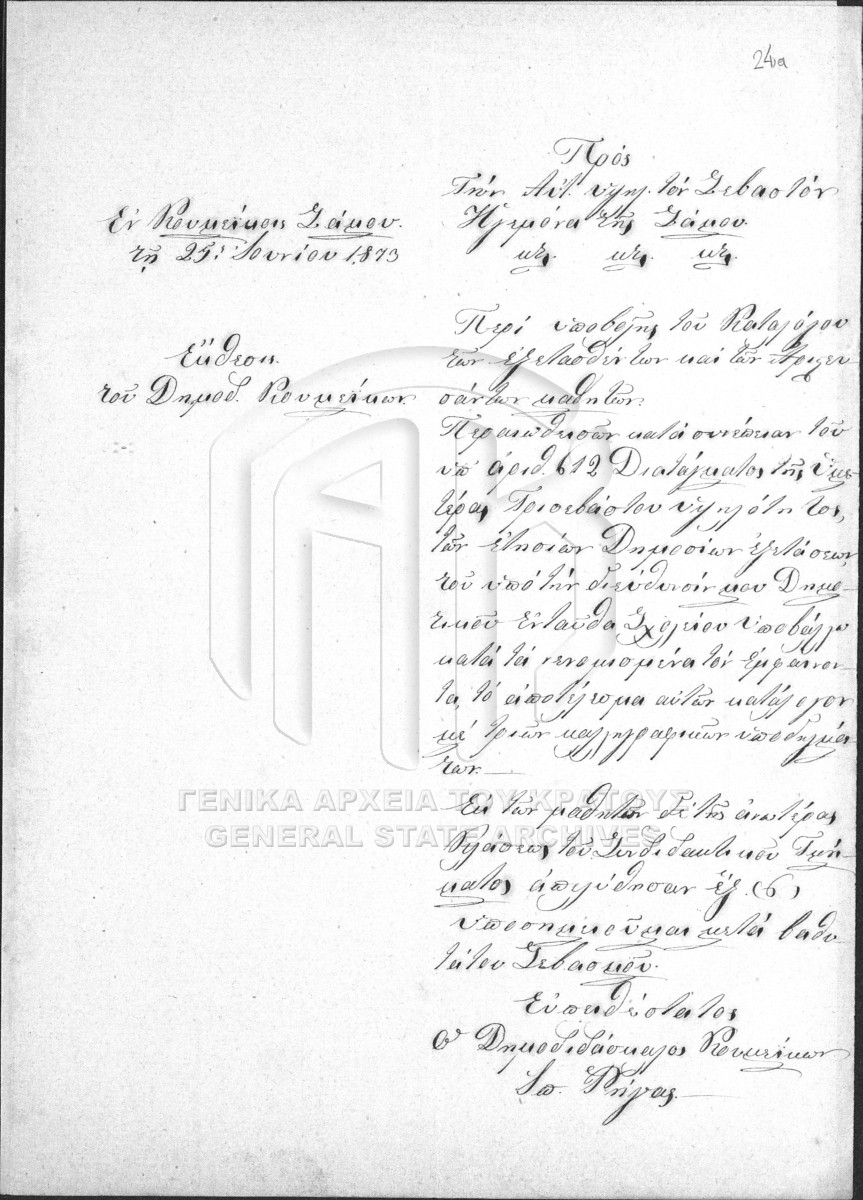 24α
Πρός
Τήν Αὐτ. ὑψηλ. τόν Σεβαστόν
Ἡγεμόνα τῆς Σάμου.
κτς. κτς. κτς.
Ἐν Κουμεΐκοις Σάμου.
τῇ 25: Ἰουνίου 1873
Ἔκθεσις
τοῦ Δημοδ. Κουμεΐκων
Περί ὑποβολῆς τοῦ Καταλόγου
τῶν ἐξετασθέντων καί τῶν ἀριστευ
σάντων μαθητῶν.
Περαιωθεισῶν κατά συνέπειαν τοῦ
ὑπ' ἀριθ. 612 Διατάγματος τῆς Ὑμε
τέρας Τρισεβάστου ὑψηλότητος,
τῶν ἐτησίων Δημοσίων ἐξετάσεων
τοῦ ὑπό τήν διεύθυνσίν μου Δημο-
τικοῦ ἐνταῦθα Σχολείου ὑποβάλλω
κατά τά νενομισμένα τόν ἐμφαίνον-
τα τό ἀποτέλεσμα αὐτῶν κατάλογον
μέ τριῶν καλλιγραφικῶν ὑποδειγμά
των.
Ἐκ τῶν μαθητῶν δέ τῆς ἀνωτέρας
Κλάσεως τοῦ Συνδιδακτικοῦ Τμή-
ματος ἀπελύθησαν ἕξ (6)
ὑποσημειοῦμαι μετά βαθυ
τάτου Σεβασμοῦ.
Εὐπειθέστατος
ὁ Δημοδιδάσκαλος Κουμεΐκων
Σπ. Ρήγας
ΓΕΝΙΚΑ ΑΡΧΕΙΑ ΤΟΥ ΚΡΑΤΟΥΣ
GENERAL STATE ARCHIVES